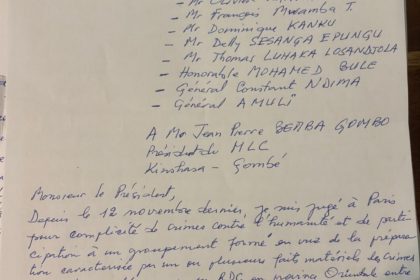 - Mr Olivier
- Mr François Mwamba T.
- Mr Dominique KANKU
- Mr Delly SESANGA EPUNGU
- Mr Thomas LUHAKA LOSANDJOLA
- Honorable MOHAMED BULE
- Général Constant N'DIMA
- Général AMULI
A Mr Jean Pierre BEMBA GOMBO
Président du MLC
Kinshasa - Gombé
Monsieur le Président,
Depuis le 12 novembre dernier, je suis jugé à Paris
pour complicité de crimes contre l'humanité et de parti
cipation à un groupement formé en vue de la prépara
tion caractérisée par un ou plusieurs faits matériels de crimes
RDC en province Orientale